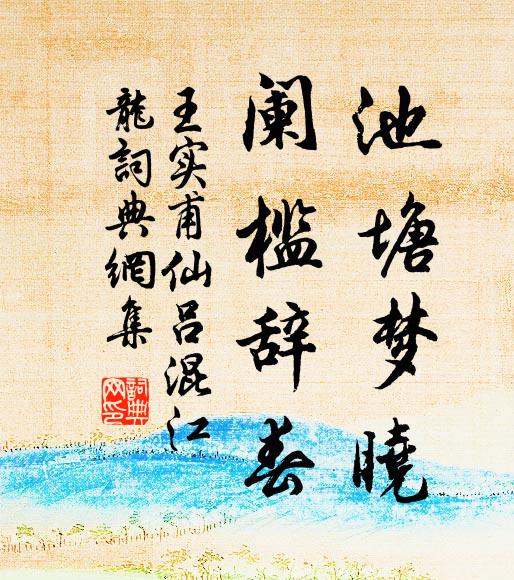 池塘梦曉
阑槛辞春
王实甫仙吕混江
龍詞典網集
詞典网印